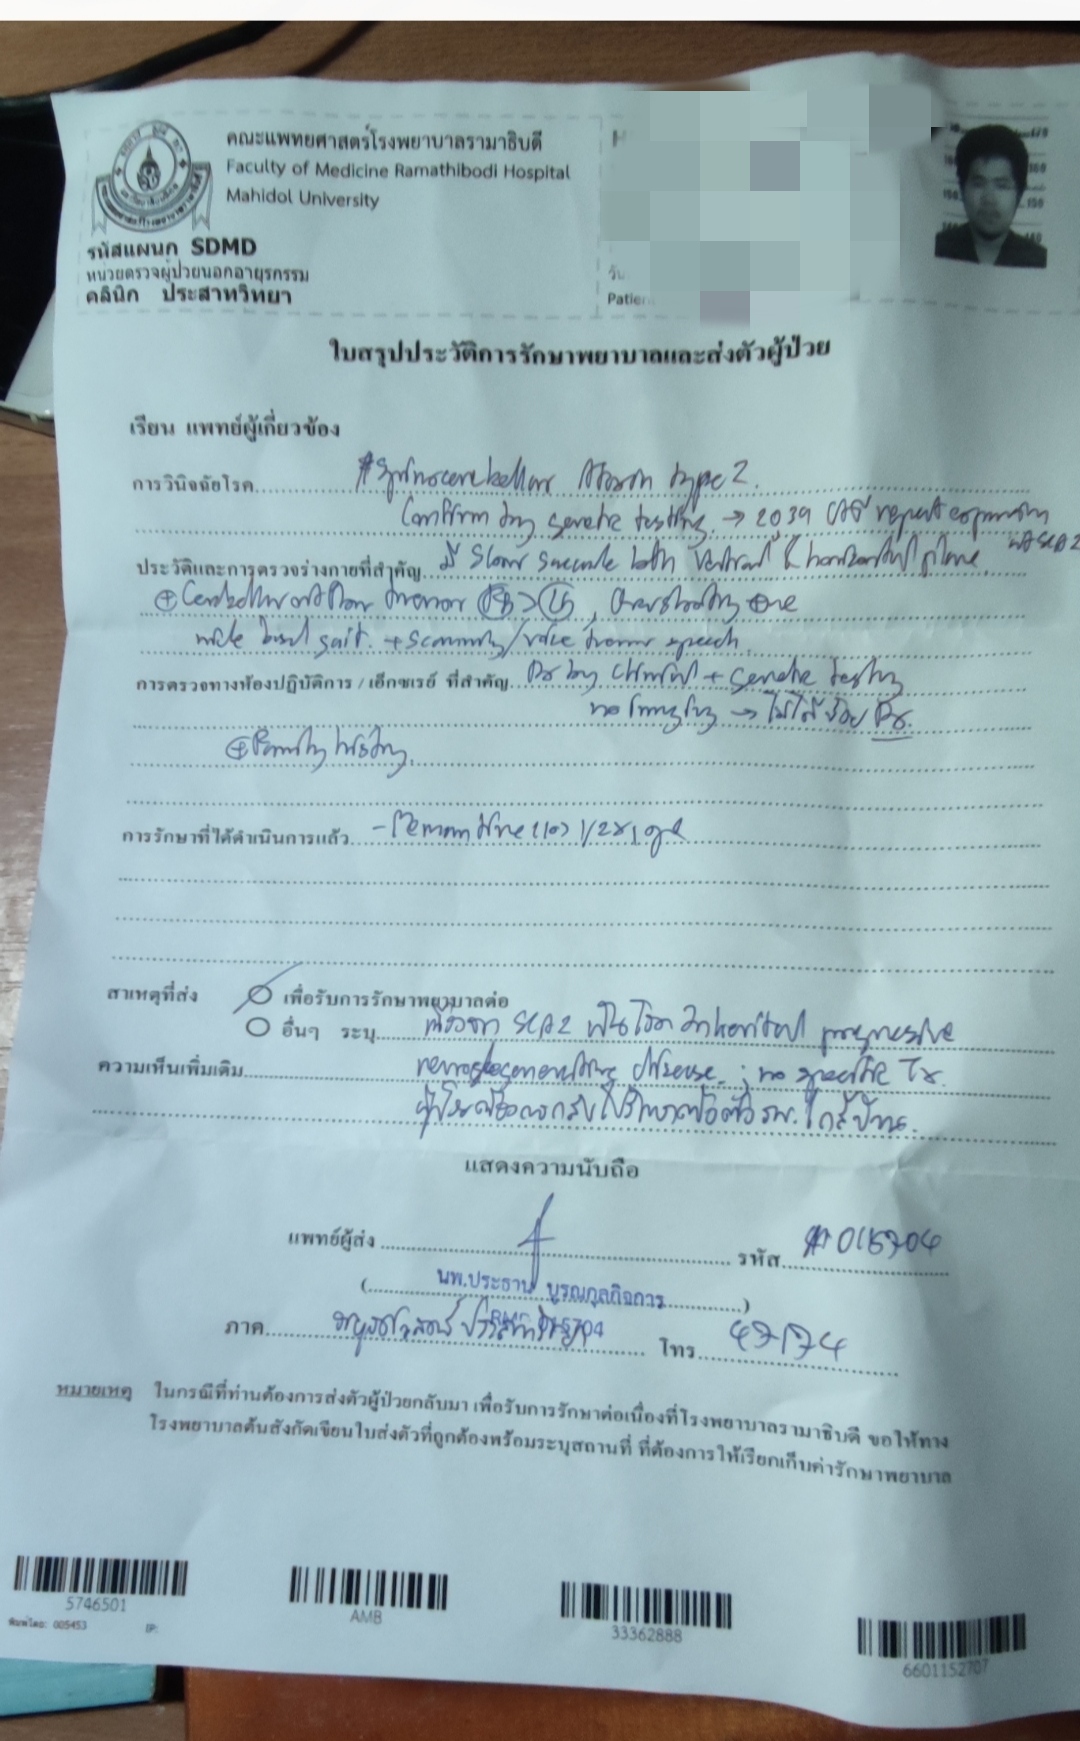 คณะแพทยศาสตร์โรงพยาบาลรามาธิบดี
Faculty of Medicine Ramathibodi Hospital
Mahidol University
รหัสแผนก SDMD
หน่วยตรวจผู้ป่วยนอกอายุรกรรม
คลินิก ประสาทวิทยา
ใบสรุปประวัติการรักษาพยาบาลและส่งตัวผู้ป่วย
เรียน แพทย์ผู้เกี่ยวข้อง
การวินิจฉัยโรค # Spinocerebellar Ataxia type 2.
Confirm by genetic testing → CAG repeat expansion
ประวัติและการตรวจร่างกายที่สำคัญ มี slow saccade both vertical & horizontal plane
⊕ Cerebellar outflow tremor Rt > Lt,
wide based gait. + scanning/voice tremor speech
การตรวจทางห้องปฏิบัติการ / เอ็กซเรย์ ที่สำคัญ Dx by clinical + genetic testing
no imaging → ไม่ได้ช่วย Dx.
⊕ Family history
การรักษาที่ได้ดำเนินการแล้ว - Memantine (10) 1/2x1
สาเหตุที่ส่ง เพื่อรับการรักษาพยาบาลต่อ
อื่นๆ ระบุ เนื่องจาก SCA2 เป็นโรค inherited progressive
ความเห็นเพิ่มเติม neurodegenerative disease ; no specific Tx.
ผู้ป่วยต้องการกลับไปรักษาต่อที่ รพ. ใกล้บ้าน.
แสดงความนับถือ
แพทย์ผู้ส่ง รหัส 015704
(นพ.ประธาน บูรณกุลกิจการ)
ภาค โทร 47174
หมายเหตุ ในกรณีที่ท่านต้องการส่งตัวผู้ป่วยกลับมา เพื่อรับการรักษาต่อเนื่องที่โรงพยาบาลรามาธิบดี ขอให้ทาง
โรงพยาบาลต้นสังกัดเขียนใบส่งตัวที่ถูกต้องพร้อมระบุสถานที่ ที่ต้องการให้เรียกเก็บค่ารักษาพยาบาล
5746501 AMB 33362888 6601152707
พิมพ์โดย: 005453 IP: